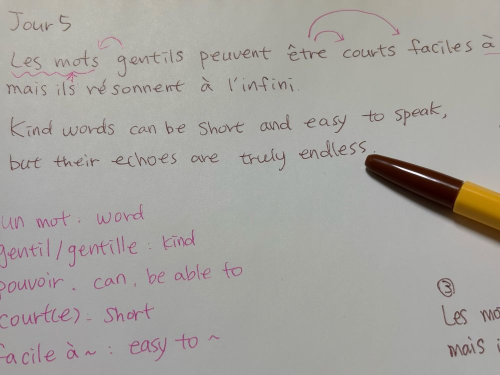 Jour 5
Les mots gentils peuvent être courts faciles à
mais ils résonnent à l'infini.
Kind words can be short and easy to speak,
but their echoes are truly endless.
un mot : word
gentil/gentille : kind
pouvoir . can, be able to
court(e) - short
facile à ~ : easy to ~
③
Les mo
mais i